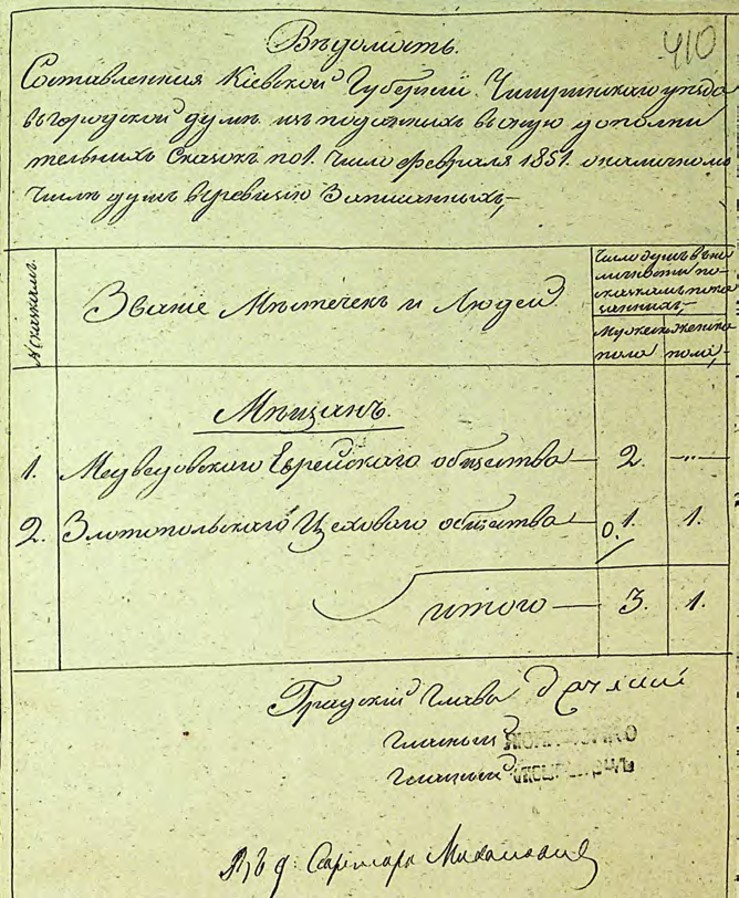 Вѣдомость.
410
Составленная Кіевской Губерніи Чигиринскаго уѣзда
въ городской думѣ изъ поданныхъ въ оную дополни
тельныхъ Сказокъ по 1. Число февраля 1851. о наличномъ
числѣ душъ въ ревизію Записанныхъ,
№ сказкамъ.
Званіе Мѣстечекъ и Людей
Число душъ въ на
личности по
сказкамъ пока
занныхъ,
Мужеска женска
пола пола,
Мѣщанъ.
1. Медведовскаго Еврейскаго общества — 2. —„—
2. Златопольскаго Цеховаго общества — 0. 1. 1.
итого — 3. 1.
Градскій Глава
Гласный
Гласный